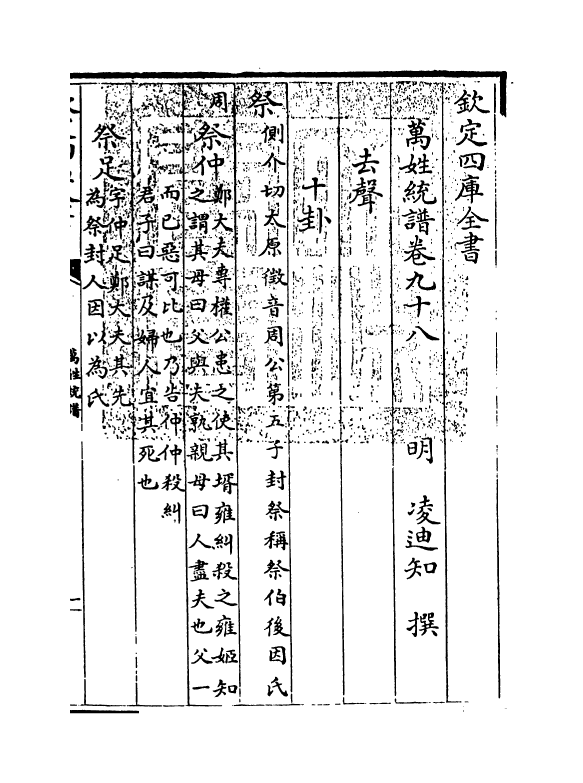 欽定四庫全書
萬姓統譜卷九十八
明 凌迪知 撰
去聲
十卦
祭側介切太原徵音周公第五子封祭稱祭伯後因氏
周
祭仲鄭大夫專權公患之使其壻雍糾殺之雍姬知
之謂其母曰父與夫孰親母曰人盡夫也父一
而已惡可比也乃告仲仲殺糾
君子曰謀及婦人宜其死也
祭足字仲足鄭大夫其先
為祭封人因以為氏
萬姓統譜
一